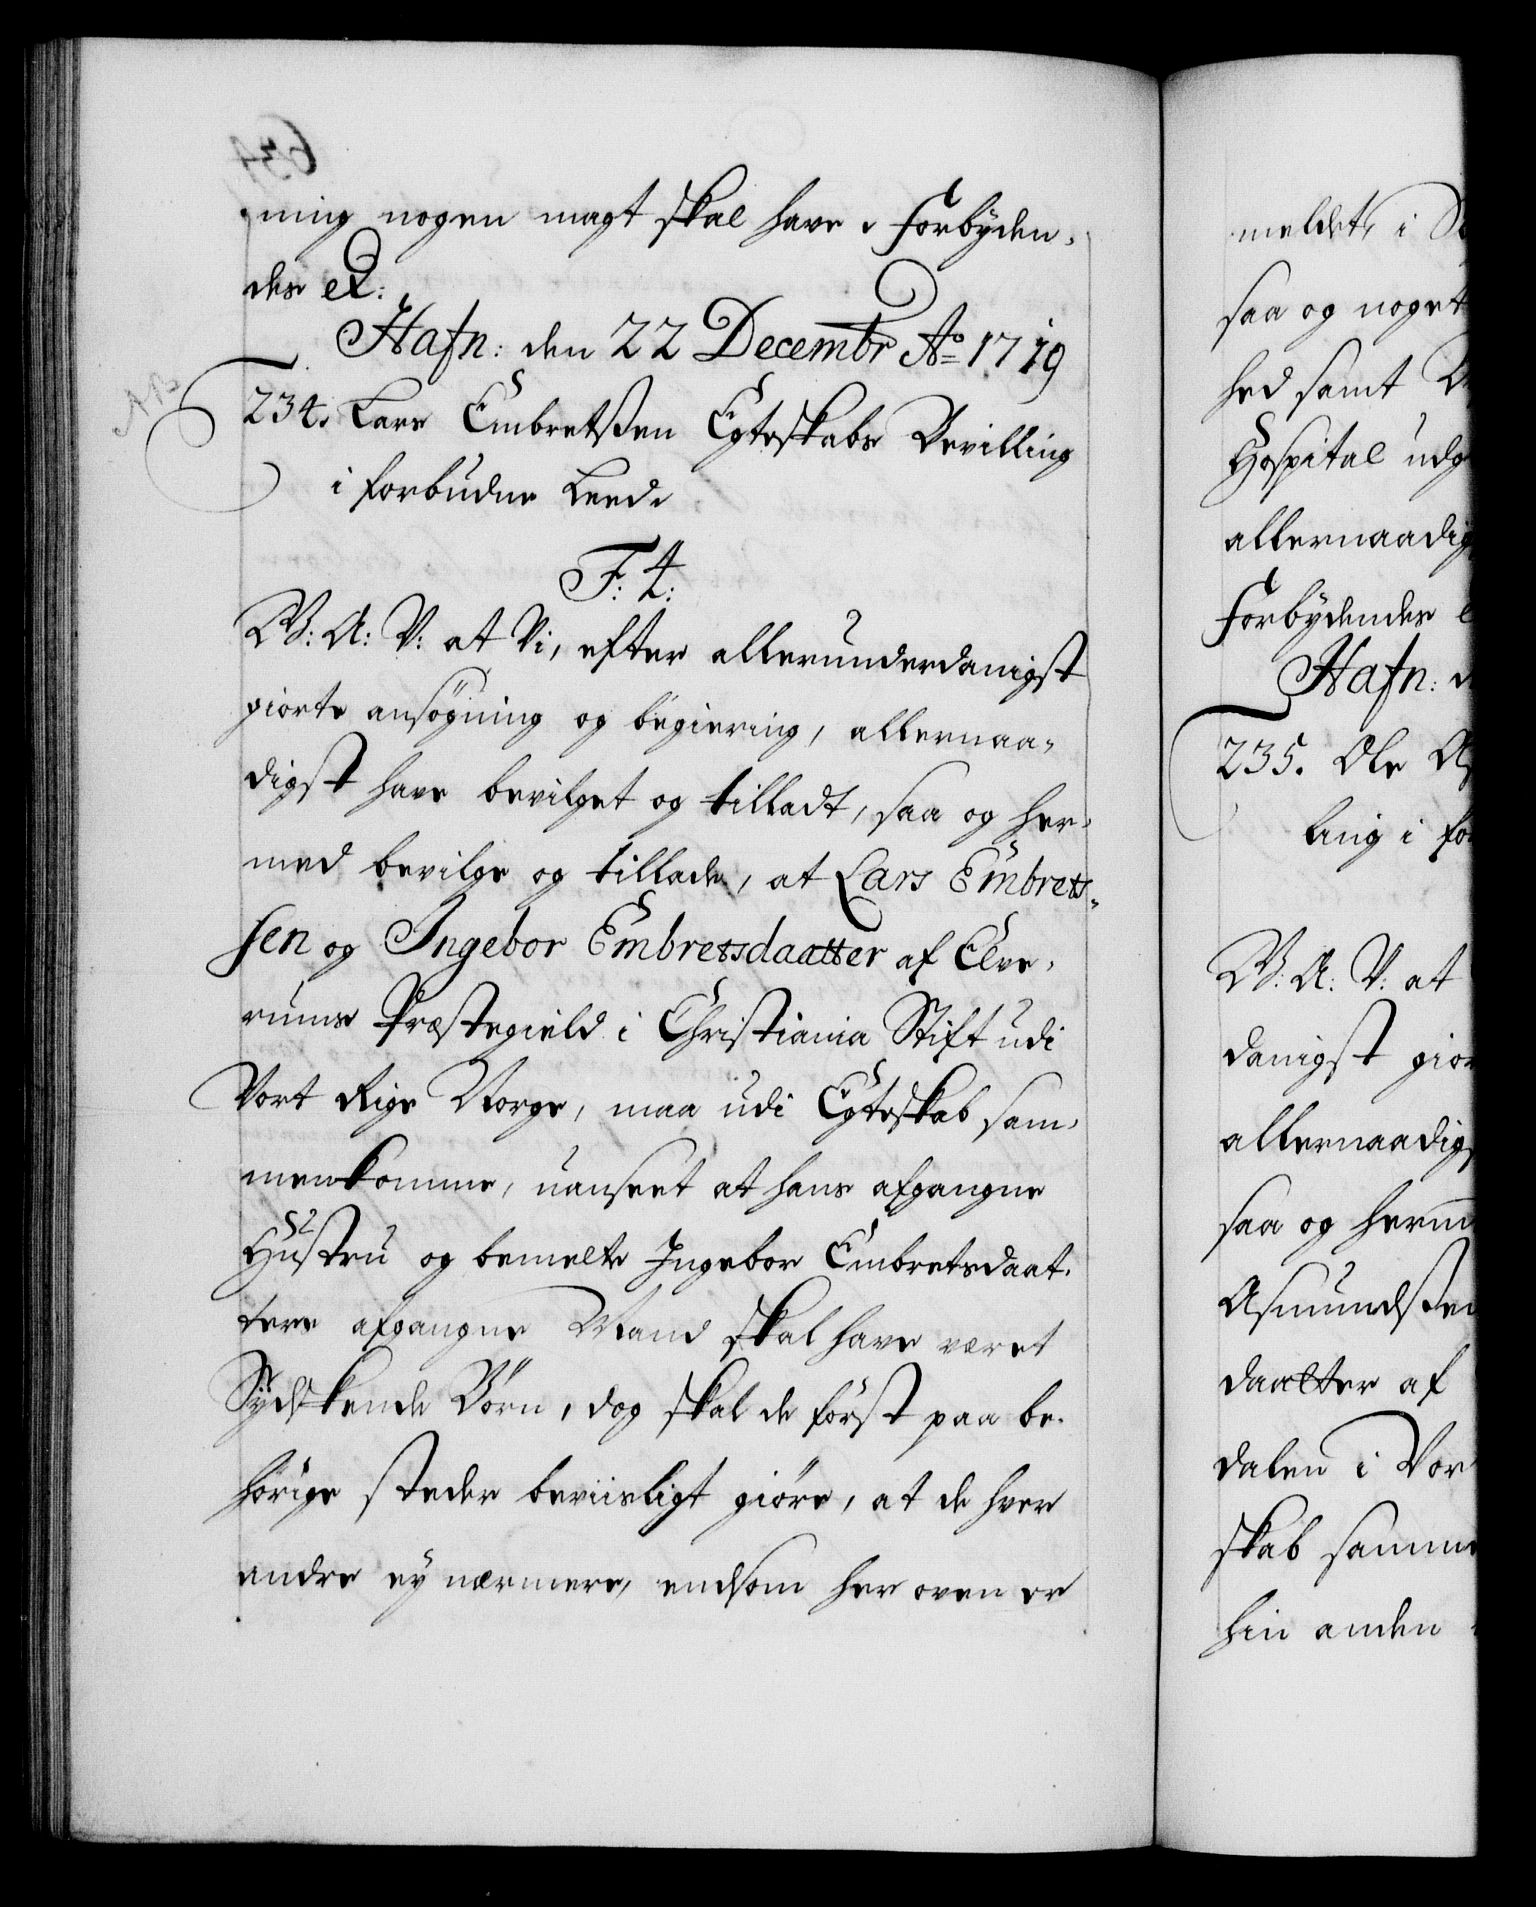 ning nogen magt skal have. Forbyden-
des &:
Hafn: den 22 Decembr Ao 1719
234. Lars Embretsen Egteskabs Bevilling
i forbudne Leed.
F: 4:
W: A: V: at Vi, efter allerunderdanigst
giorte ansøgning og begiering, allernaa-
digst have bevilget og tilladt, saa og her-
med bevilge og tillade, at Lars Embrets-
sen og Ingebor Embretsdaatter af Elve-
rums Præstegield i Christiania Stift udi
Vort Rige Norge, maa udi Egteskab sam-
menkomme, uanseet at hans afgangne
Hustru og bemelte Ingebor Embretsdaat-
ters afgangne Mand skal have været
Sydskende Börn, dog skal de först paa be-
hörige steder beviisligt giöre, at de hver
andre ey nærmere, end som her oven er
meldet, i
saa og noget
hed samt
Hospital udg
allernaadig
Forbydendes
Hafn: d
235. Ole
ling i for
W: A: V: at
danigst gior
allernaadigs
saa og herm
Asmundsen
daatter af
dalen i Vor
skab samme
hin anden